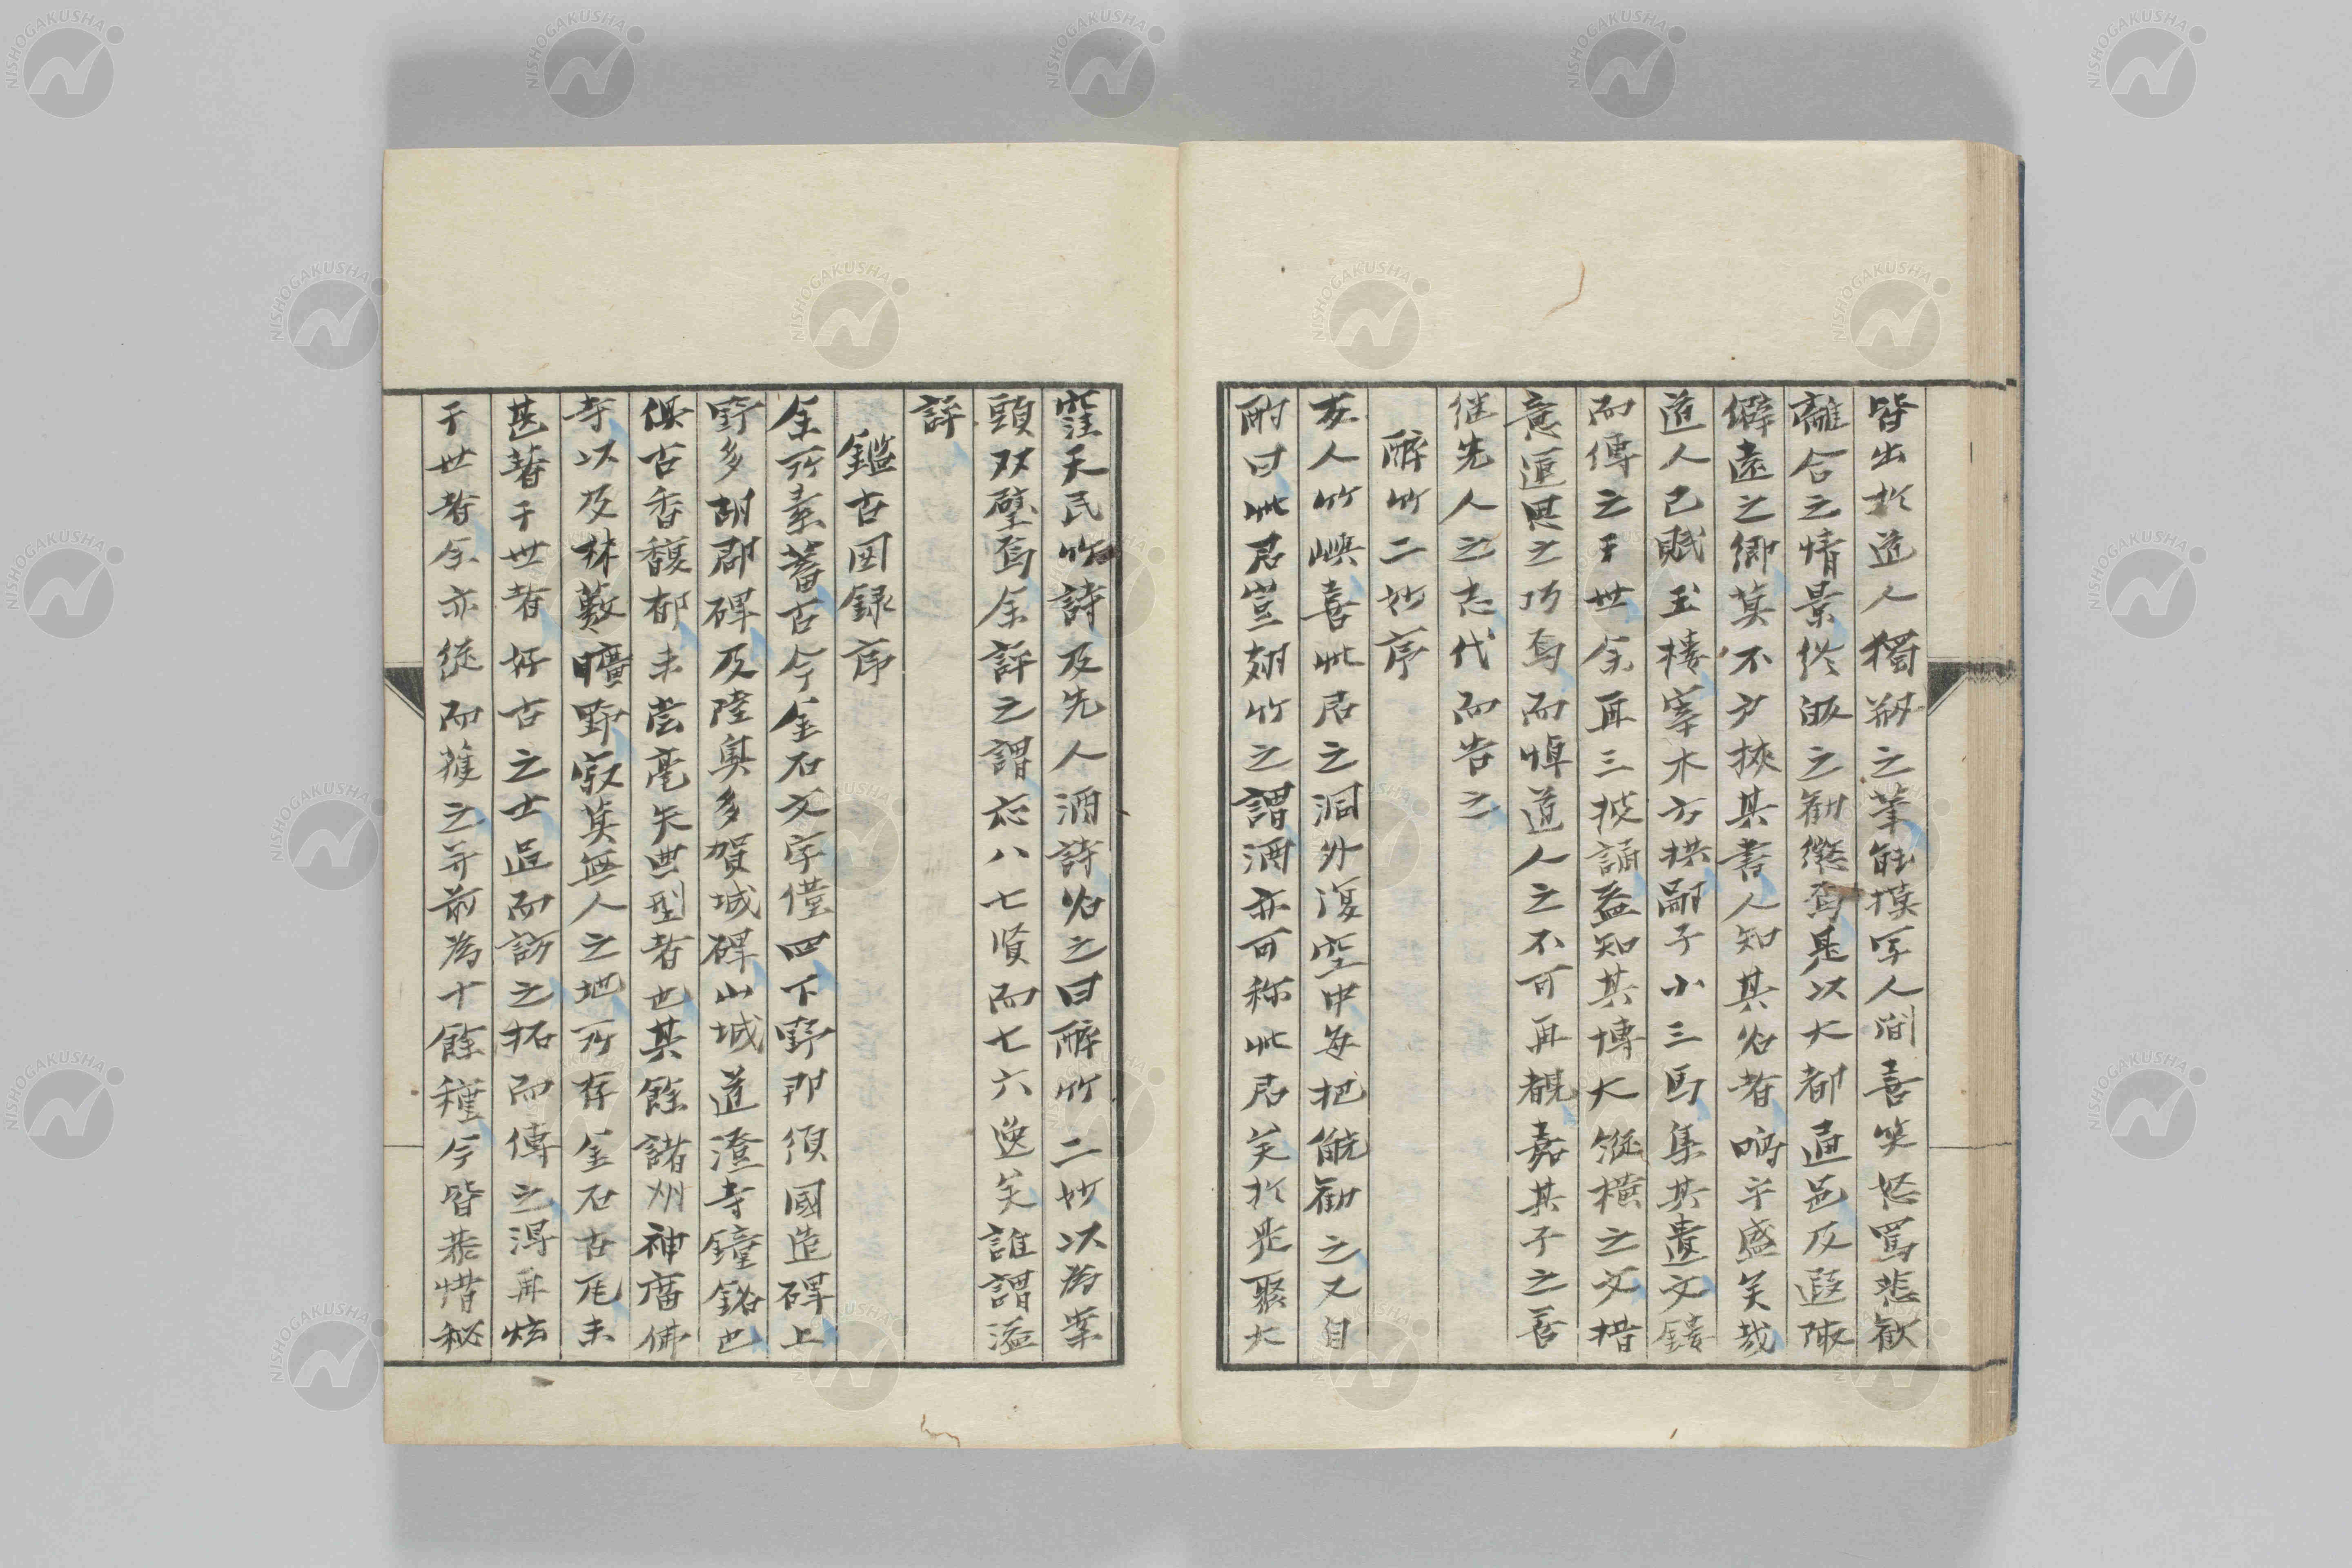 皆出於道人獨粉之筆能摸写人間喜笑怒罵悲歓
離合之情景從敀之勧懲焉是以大都通邑及遐陬
僻遠之郷莫不戸挾其書人知其名者嗚乎盛矣哉
道人已賦玉楼宰木方拱嗣子小三馬集其遺文鏤
而傳之于世余再三披誦益知其博大縦横之文措
意運思之巧焉而惜道人之不可再覩嘉其子之善
继先人之志代而告之
醉竹二妙序
友人竹嶼喜此君之洞外復空中毎把觥勧之又自
酎曰此君豈翅竹之謂酒亦可称此君矣於是聚大
窪天民竹詩及先人酒詩名之曰醉竹二妙以為案
頭双璧焉余評之謂忘八七賢而七六逸矣誰謂溢
評
鑑古図録序
余所素蓄古今金石文字僅四下野那須國造碑上
野多胡郡碑及陸奥多賀城碑山城道澄寺鐘銘也
倶古香馥郁未嘗毫失典型者也其餘諸州神庿佛
寺以及林藪曠野寂莫無人之地所存金石古瓦未
甚著于世者好古之士逗而訪之拓而傳之得再炫
于世者余亦従而獲之并前為十餘種今皆恭惜秘